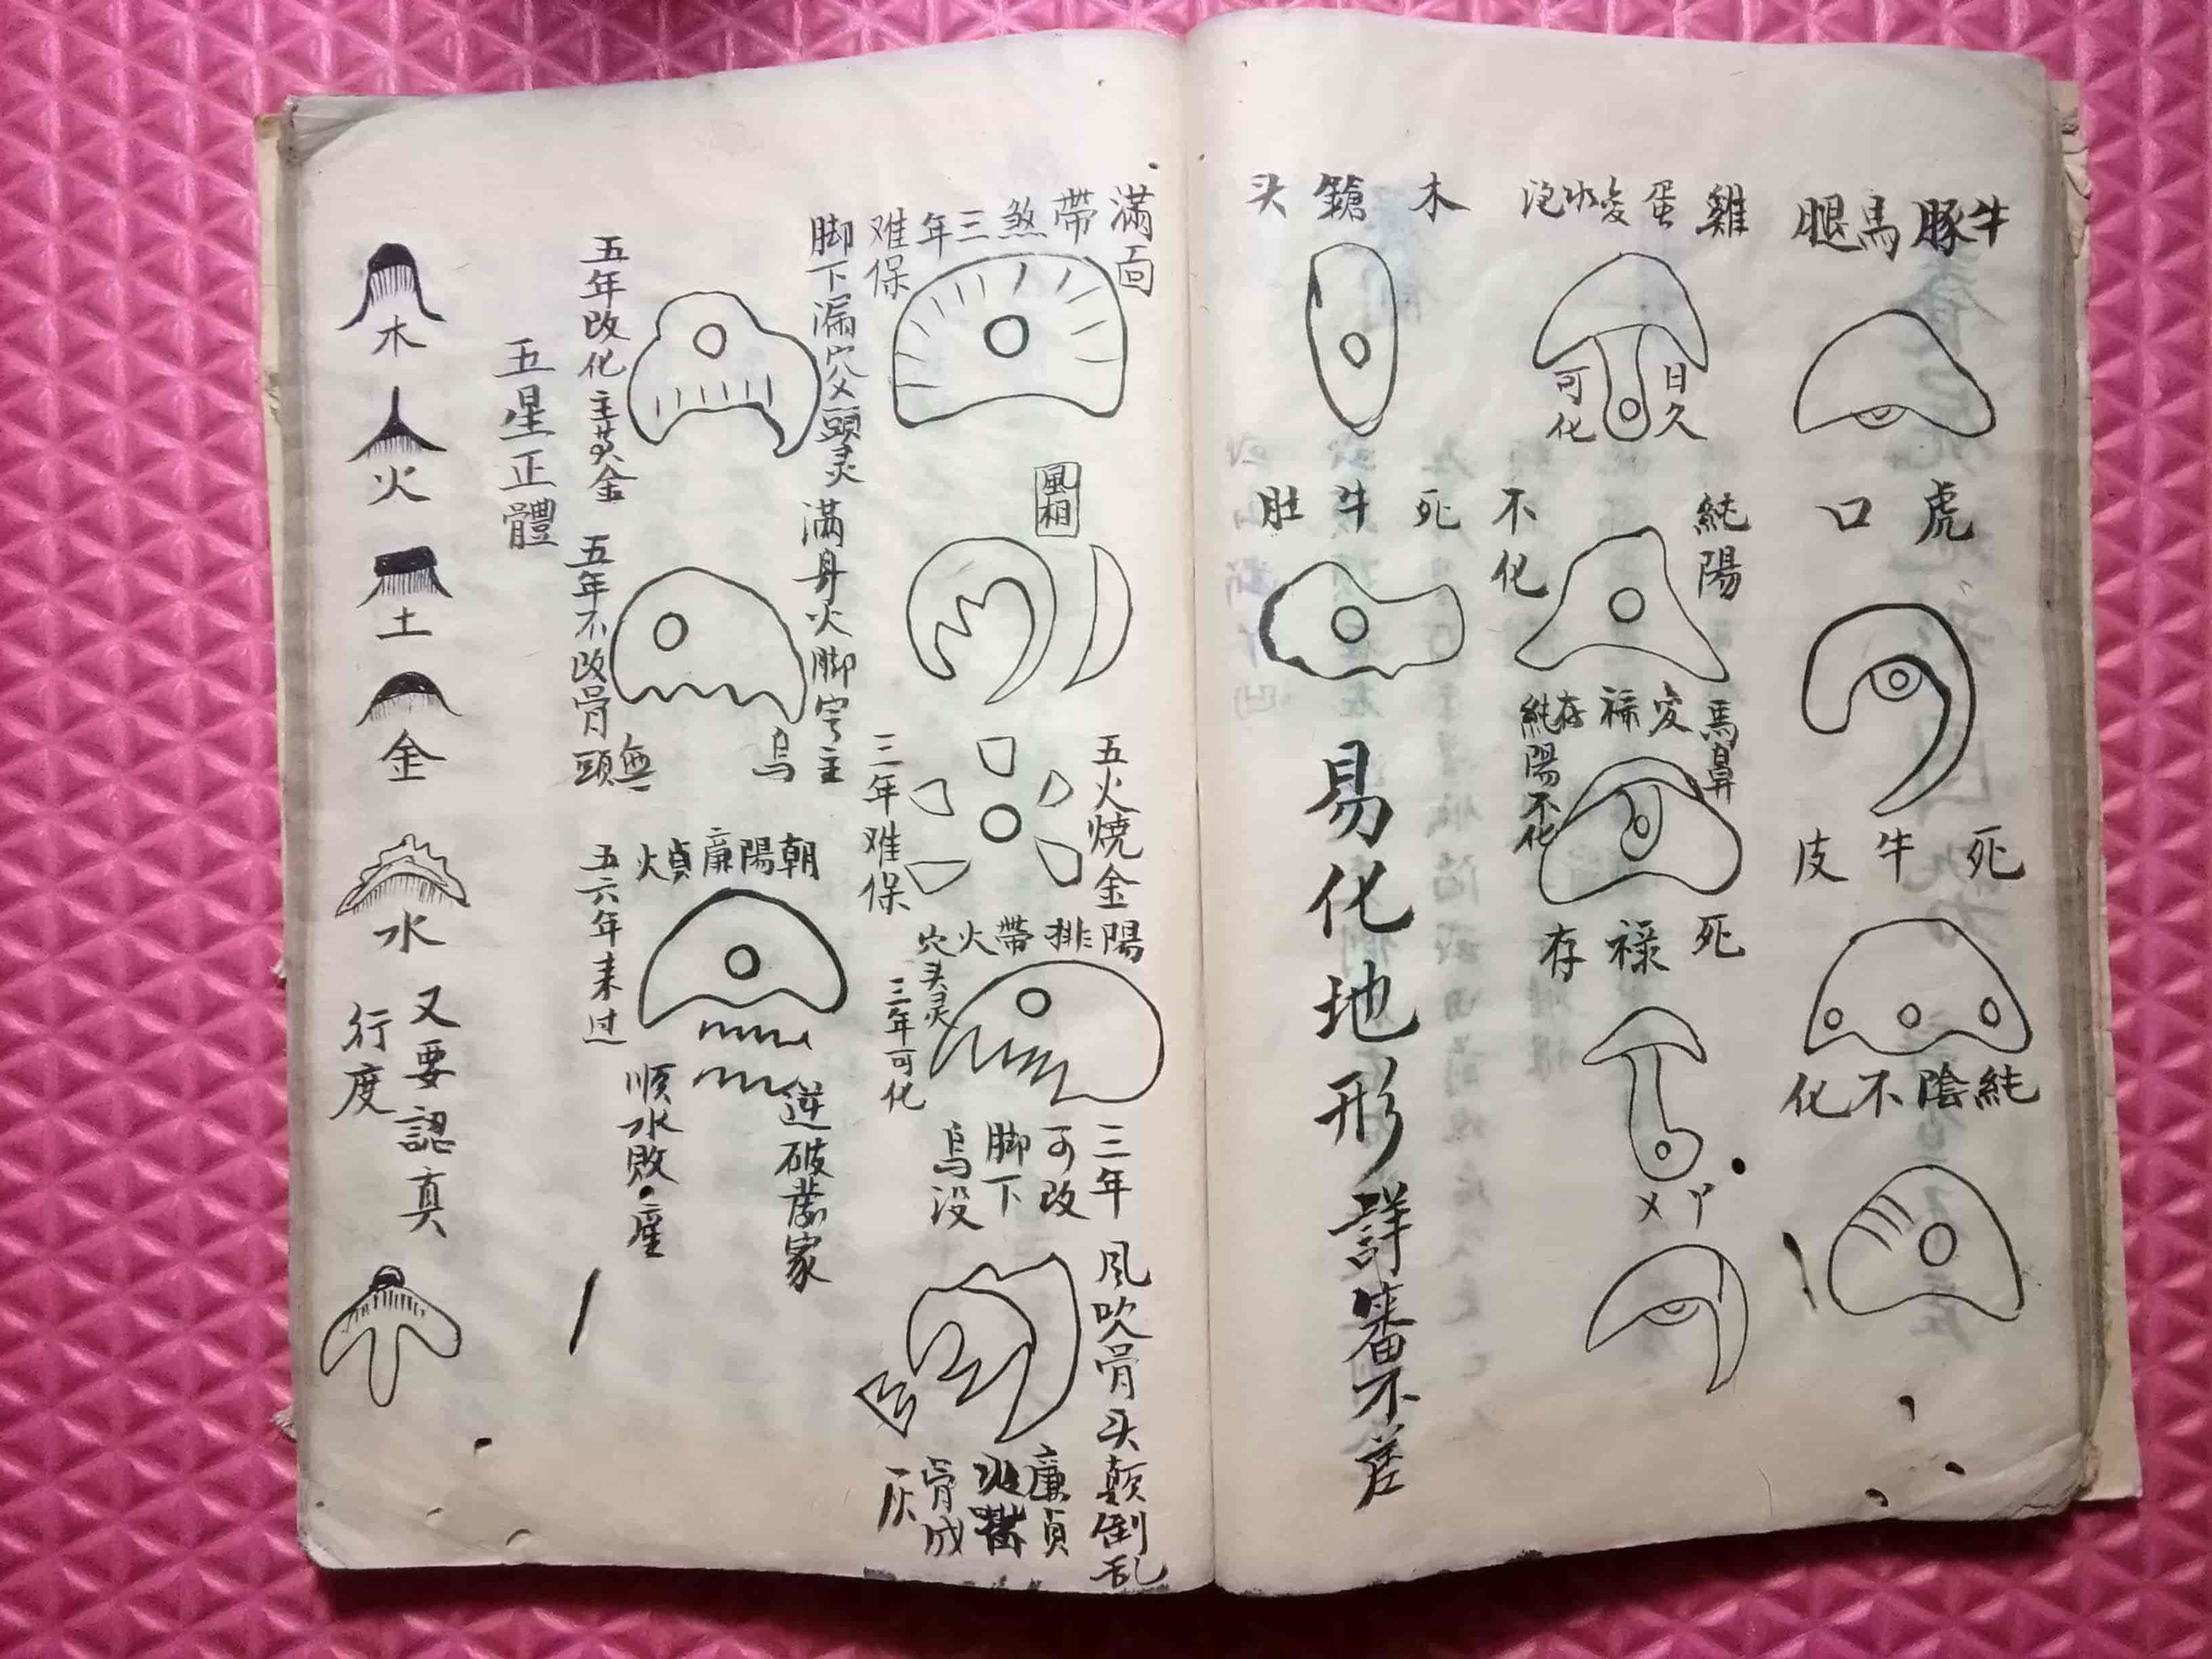 牛豚馬腿
虎口
死牛皮
純陰不化
雞蛋変水泡
日久
可化
純陽
不化
馬鼻
変禄存
純陽不化
死禄存
丫乂
木鎗头
死牛肚
易化地形詳審不差
滿面
帶煞三年
难保
風相
五火燒金陽
三年难保
陽排帶火穴
头灵
三年可化
三年
可改
脚下
烏没
風吹骨头顛倒乱
廉貞
骨成
灰
脚下漏穴乂頭灵
滿身火脚穿主
烏
無
五年改化主黄金
五年不改骨頭
朝陽廉煩
五六年来过
順水敗產
逆破蕩家
五星正體
木
火
土
金
水
又要認真
行度